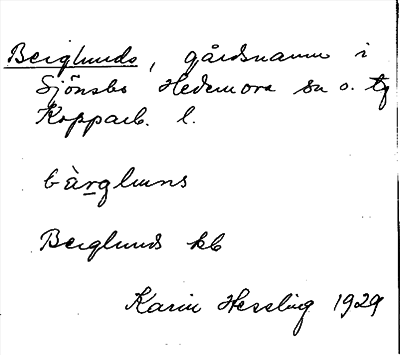 Berglunds, gårdsnamn i
Sjönsbo Hedemora sn o. tg
Kopparb. l.
bàrgluns
Berglunds kb
Karin Hessling 1929